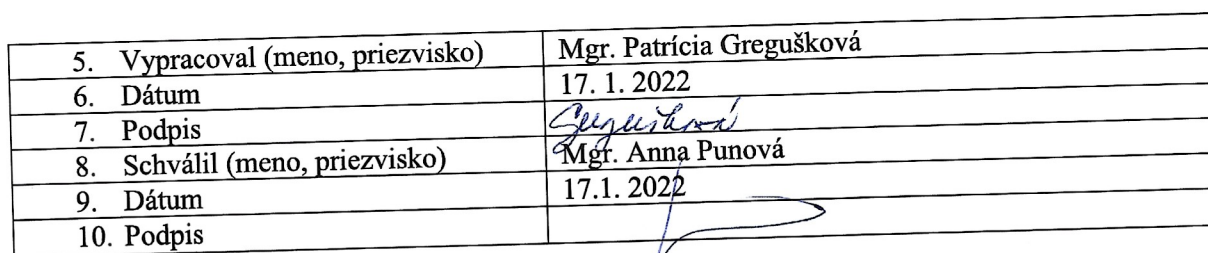 5. Vypracoval (meno, priezvisko) Mgr. Patrícia Gregušková
6. Dátum 17. 1. 2022
7. Podpis Gregušková
8. Schválil (meno, priezvisko) Mgr. Anna Punová
9. Dátum 17.1. 2022
10. Podpis